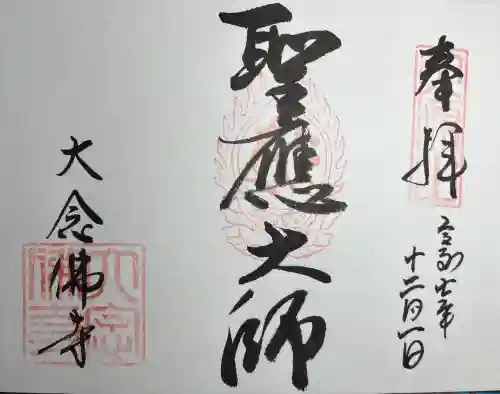 奉拝
令和七年
十二月一日
聖應大師
大念佛寺